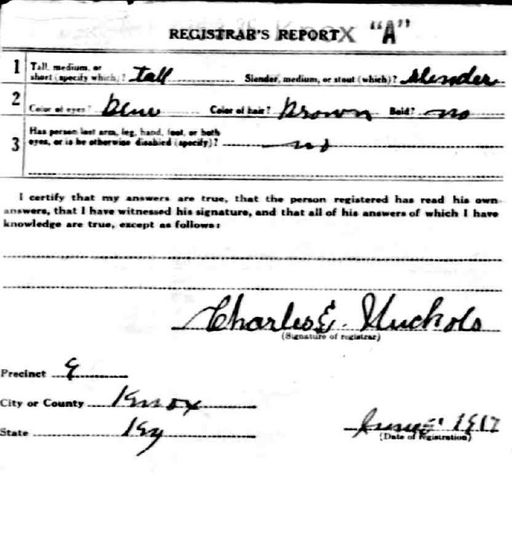 REGISTRAR'S REPORT "A"
1 Tall, medium, or short (specify which)? tall Slender, medium, or stout (which)? slender
2 Color of eyes? blue Color of hair? Brown Bald? no
3 Has person lost arm, leg, hand, foot, or both
eyes, or is he otherwise disabled (specify)? no
I certify that my answers are true, that the person registered has read his own
answers, that I have witnessed his signature, and that all of his answers of which I have
knowledge are true, except as follows:
Charles E. Nuckols
(Signature of registrar)
Precinct
City or County Knox
State Ky
June 1917
(Date of registration)